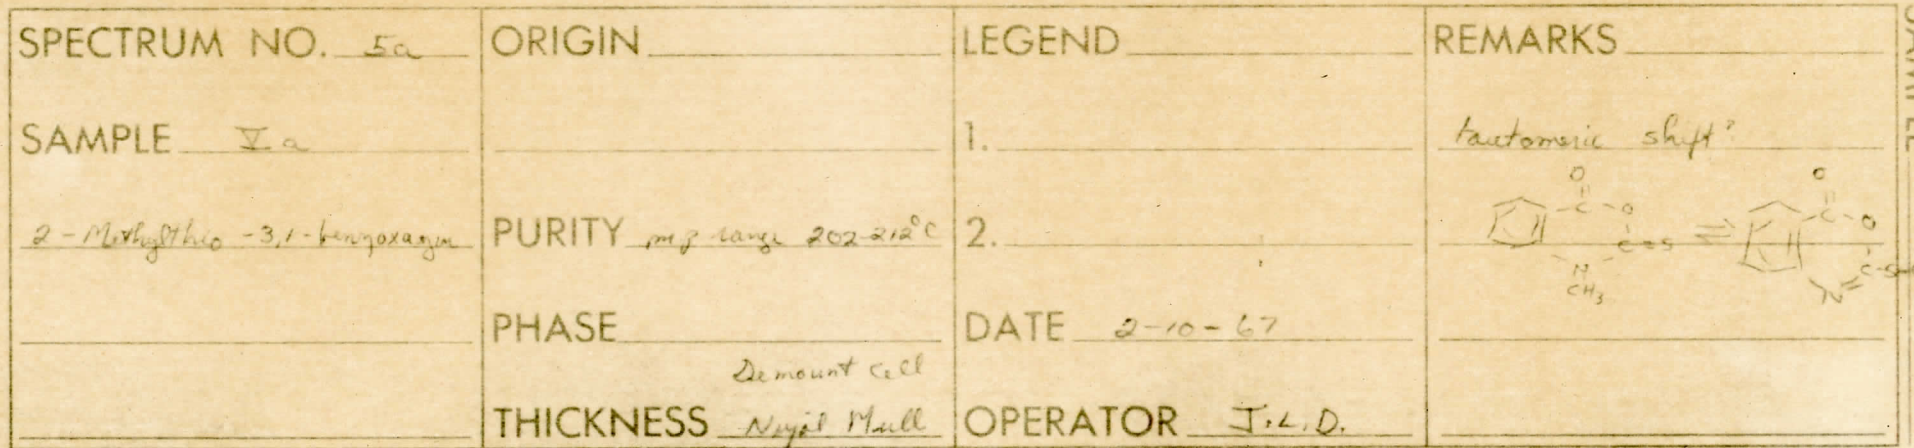 SPECTRUM NO. 5a
SAMPLE Va
2-Methylthio-3,1-benzoxazin
ORIGIN
PURITY mp range 202-212°C
PHASE
Demount cell
THICKNESS Nujol Mull
LEGEND
1.
2.
DATE 2-10-67
OPERATOR J.L.D.
REMARKS
tautomeric shift?
O O
C O C O
C=S ⇌ C-S
N N
CH3
SAMPLE